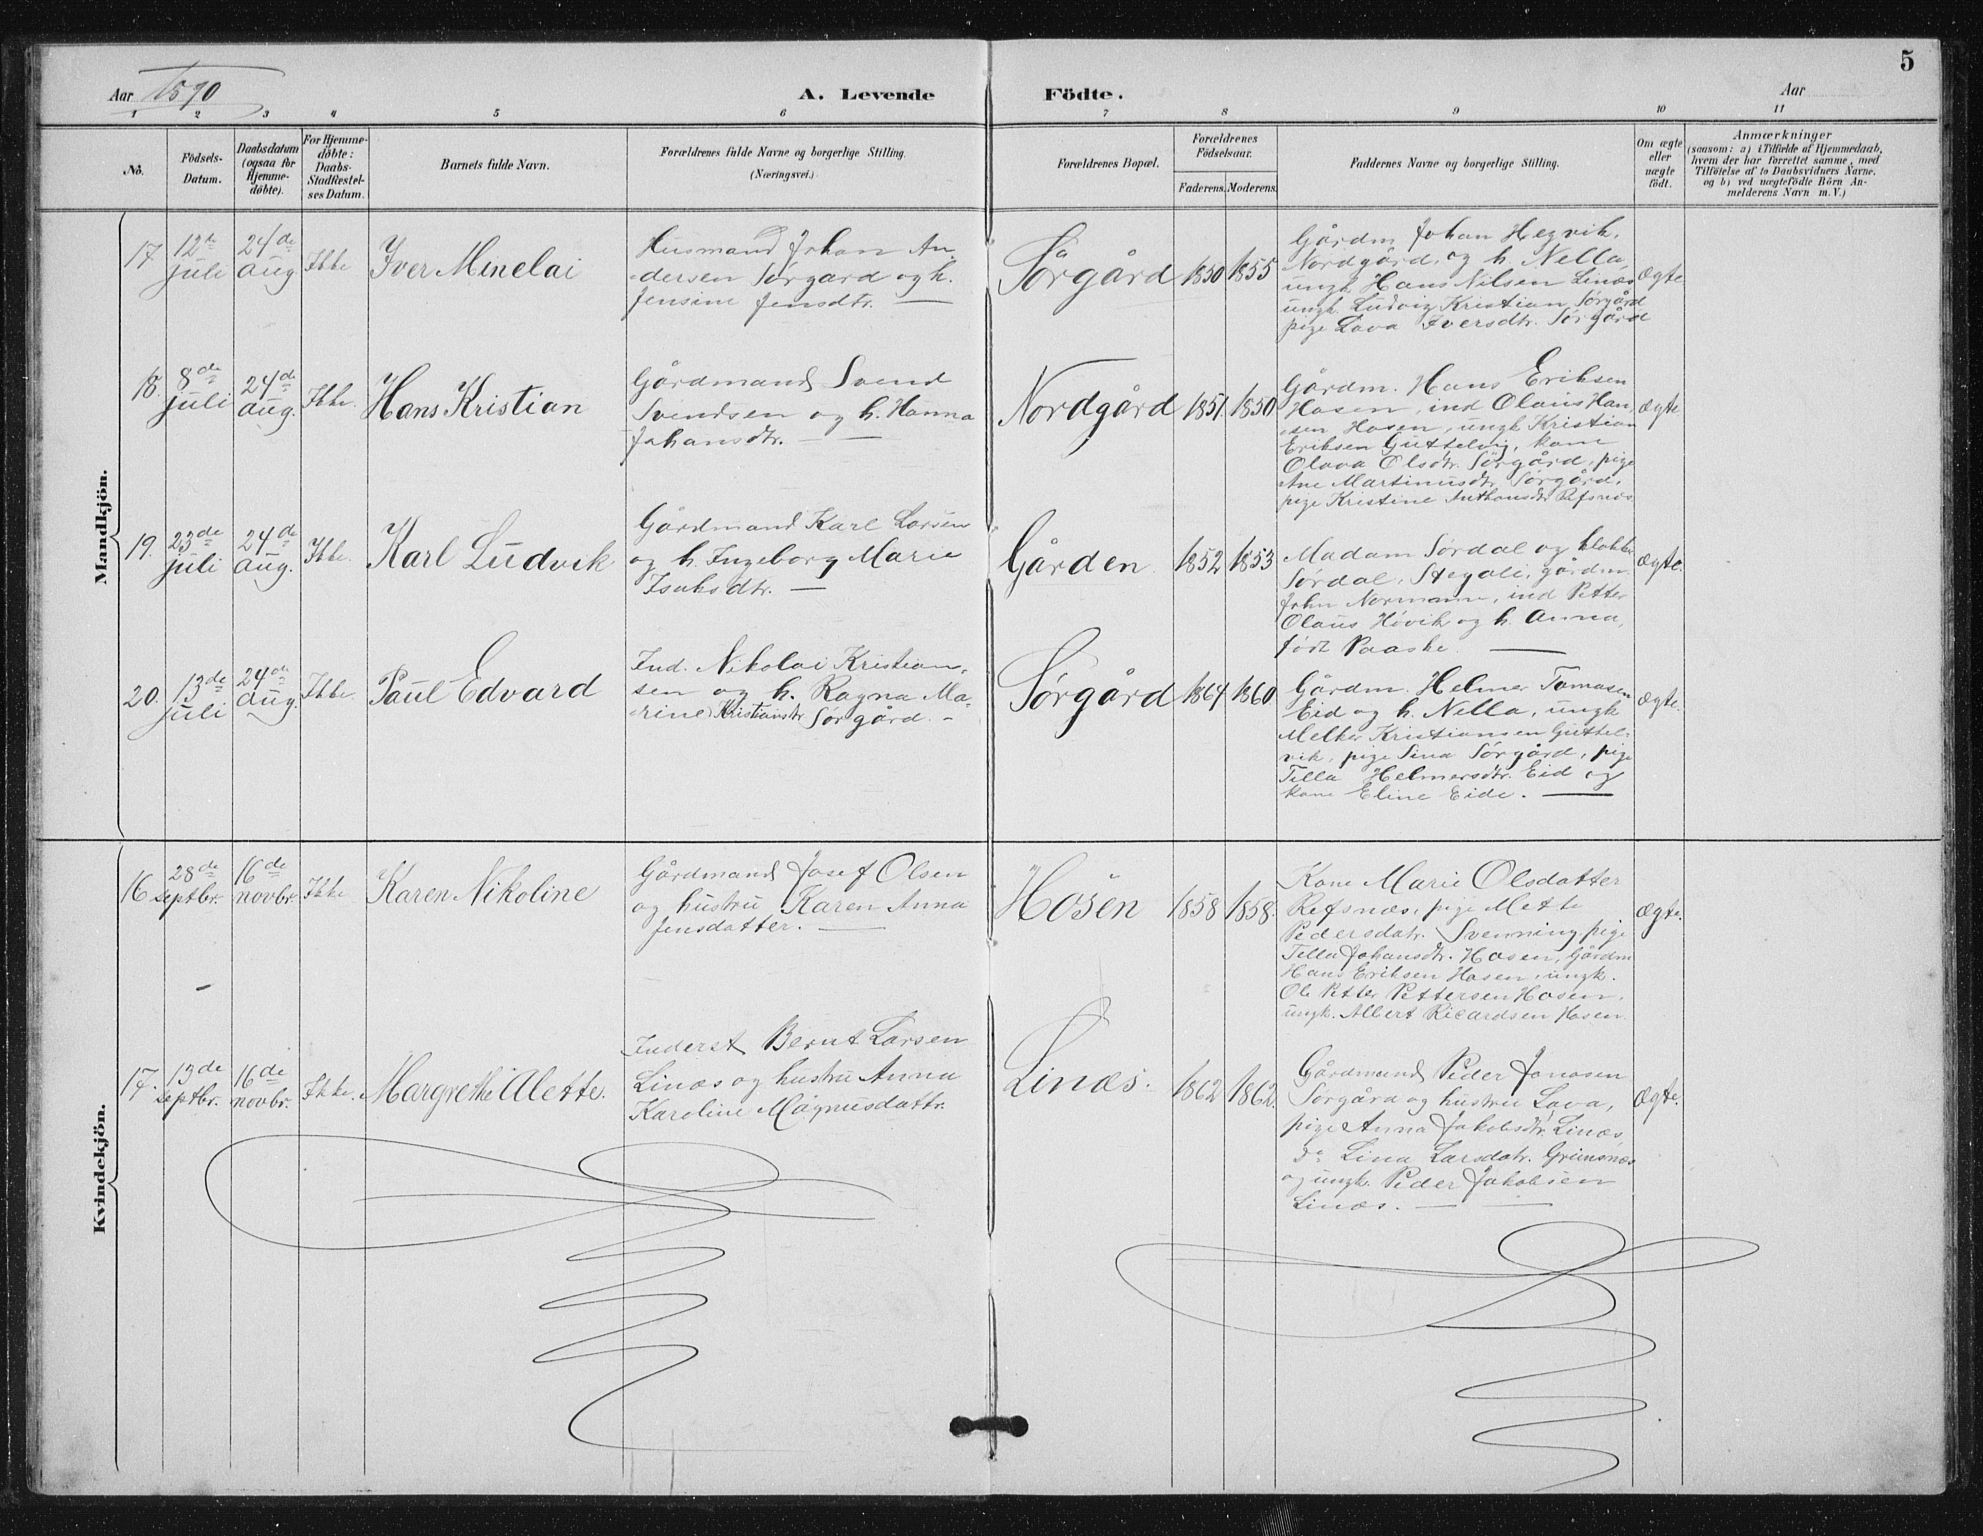 5
Aar 1890
A. Levende Födte.
Aar
1 2 3 4 5 6 7 8 9 10 11
No.
Födsels-
Datum.
Daabsdatum
(ogsaa for
Hjemme-
döbte).
For Hjemme-
döbte:
Daabs-
Stadfæstel-
ses Datum.
Barnets fulde Navn.
Forældrenes fulde Navne og borgerlige Stilling.
(Næringsvei.)
Forældrenes Bopæl.
Forældrenes
Födselsaar.
Faderens. Moderens.
Faddernes Navne og borgerlige Stilling.
Om ægte
eller
uægte
födt.
Anmærkninger
(saasom: a) i Tilfælde af Hjemmedaab,
hvem der har forrettet samme, med
Tilföielse af to Daabsvidners Navne,
og b) ved uægtefödte Börn An-
melderens Navn m. V.)
Mandkjön.
17
12te
juli
24de
aug
Ikke
Iver Minelai
Husmand Johan An-
dersen Sørgård og h.
Jensine Jensdtr. —
Sørgård
1850
1855
Gårdm. Johan Hegvik,
Nordgård, og h. Nella,
ungk. Hans Nilsen Linæs
ungk. Ludvig Kristian Sørgård
pige Lava Iversdtr. Sørgård
ægte.
18.
8de
juli
24de
aug.
Ikke.
Hans Kristian
Gårdmand Svend
Svendsen og h. Hanna
Johansdtr. —
Nordgård
1851.
1850.
Gårdm. Hans Eriksen
Hosen, ind Olaus Han-
sen Hosen, ungk Kristian
Eriksen Guttelvig, kone
Olava Olsdtr. Sørgård, pige
Ane Martinusdtr. Sørgård,
pige Kristine Anthonsdtr. Refsnæs
ægte
19.
23de
juli
24de
aug.
Ikke.
Karl Ludvik
Gårdmand Karl Larsen
og h. Ingeborg Marie
Isaksdtr. —
Gården.
1852
1853
Madam Sørdal og klokker
Sørdal, Stegali, gårdm.
John Normann, ind Petter
Olaus Høvik og h. Anna,
født Paaske. —
ægte.
20.
13de
juli
24de
aug.
Ikke.
Paul Edvard
Ind. Nikolai Kristian-
sen og h. Ragna Ma-
rine Kristiansdtr Sørgård. -
Sørgård
1864
1860.
Gårdm. Helmer Tomasen
Eid og h. Nella, ungk
Melker Kristiansen Guttel-
vik, pige Sina Sørgård, pige
Tilla Helmersdtr. Eid og
kone Eline Eide. —
ægte.
Kvindekjön.
16
28de
septbr.
16de
novbr.
Ikke
Karen Nikoline
Gårdmand Josef Olsen
og hustru Karen Anna
Jensdatter. —
Hosen
1858
1858.
Kone Marie Olsdatter
Refsnæs, pige Mette
Pedersdatr. Svenning pige
Tella Johansdtr. Hosen, Gårdm
Hans Eriksen Hosen, ungk.
Ole Petter Pettersen Hosen,
ungk. Albert Ricardsen Hosen.
ægte.
17.
13de
septbr.
16de
novbr.
Ikke.
Margrethe Alette.
Inderst Bernt Larsen
Linæs og hustru Anna
Karoline Magnusdattr.
Linæs.
1862
1862.
Gårdmand Peder Jonasen
Sørgård og hustru Lava,
pige Anna Jakobsdtr. Linæs,
do Lina Larsdatr. Grimsnæs
og ungk. Peder Jakobsen
Linæs. — —
Ægte.